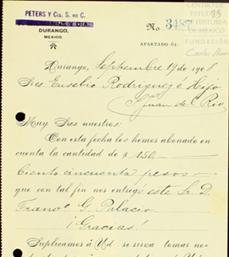 PETERS Y Cia. S. en C.
DURANGO,
MEXICO.
No. 3487
APARTADO 61.
Durango, Septiembre 19 de 1908
Sres Eusebio Rodriguez é Hijo
San Juan del Rio
Muy Sres nuestros:
Con esta fecha los hemos abonado en
cuenta la cantidad de $ 150,-
Ciento cincuenta pesos
que con tal fin nos entregó este Sr. D.
Franco G. Palacio
¡Gracias!
Suplicamos á Ud se sirva tomar no-